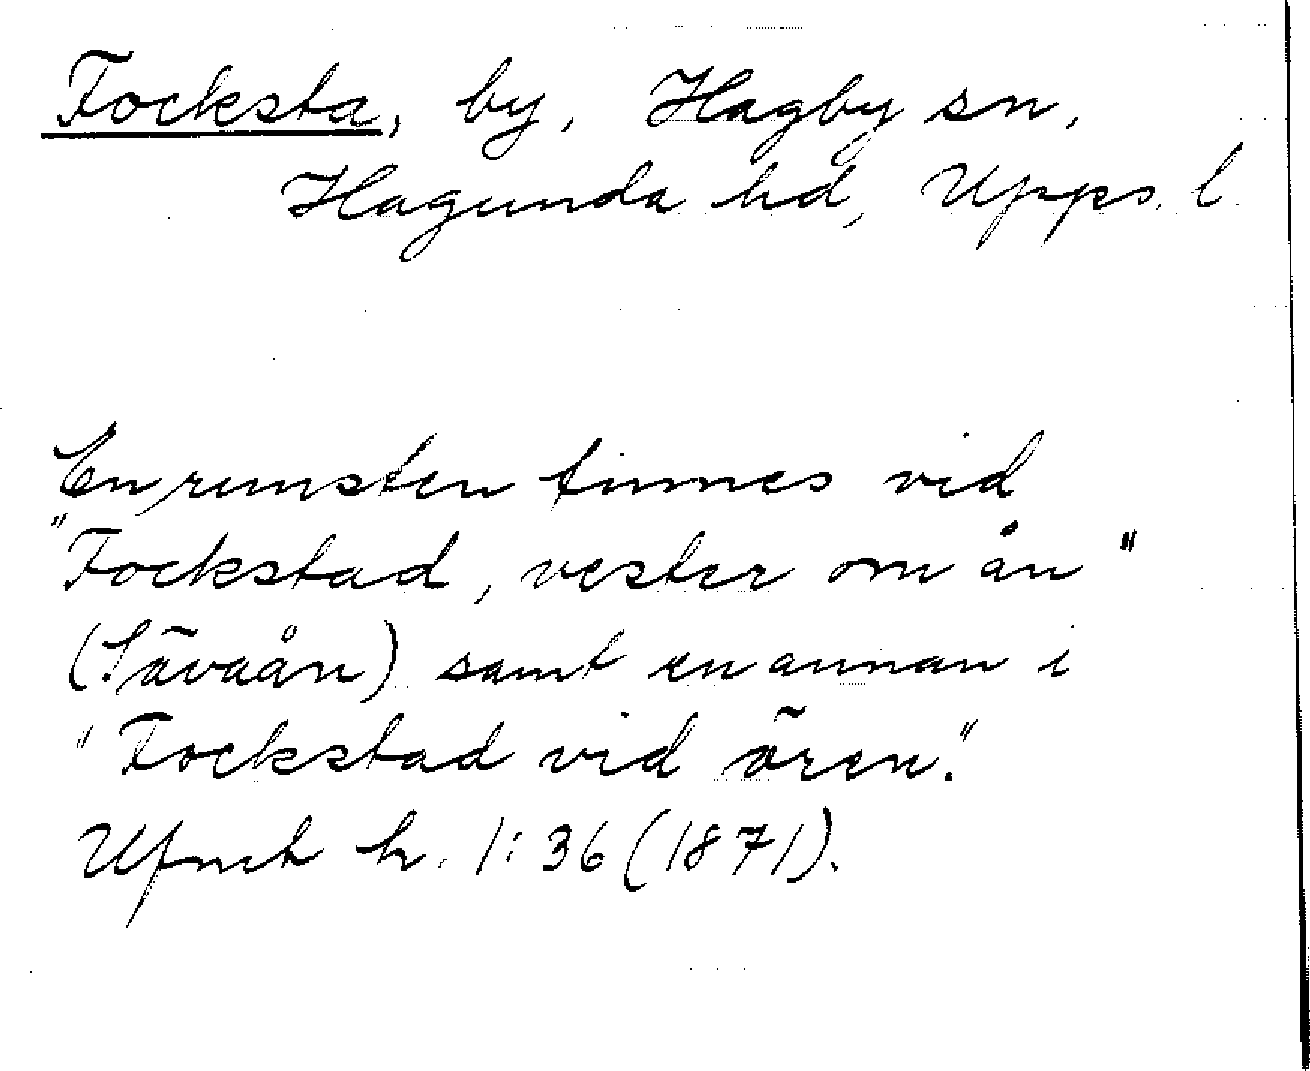 Focksta, by, Hagby sn,
Hagunda hd, Upps. l
En runsten finnes vid
"Fockstad, vester om ån"
(Sävaån) samt en annan i
"Fockstad vid ören."
Ufmt h. 1:36 (1871).